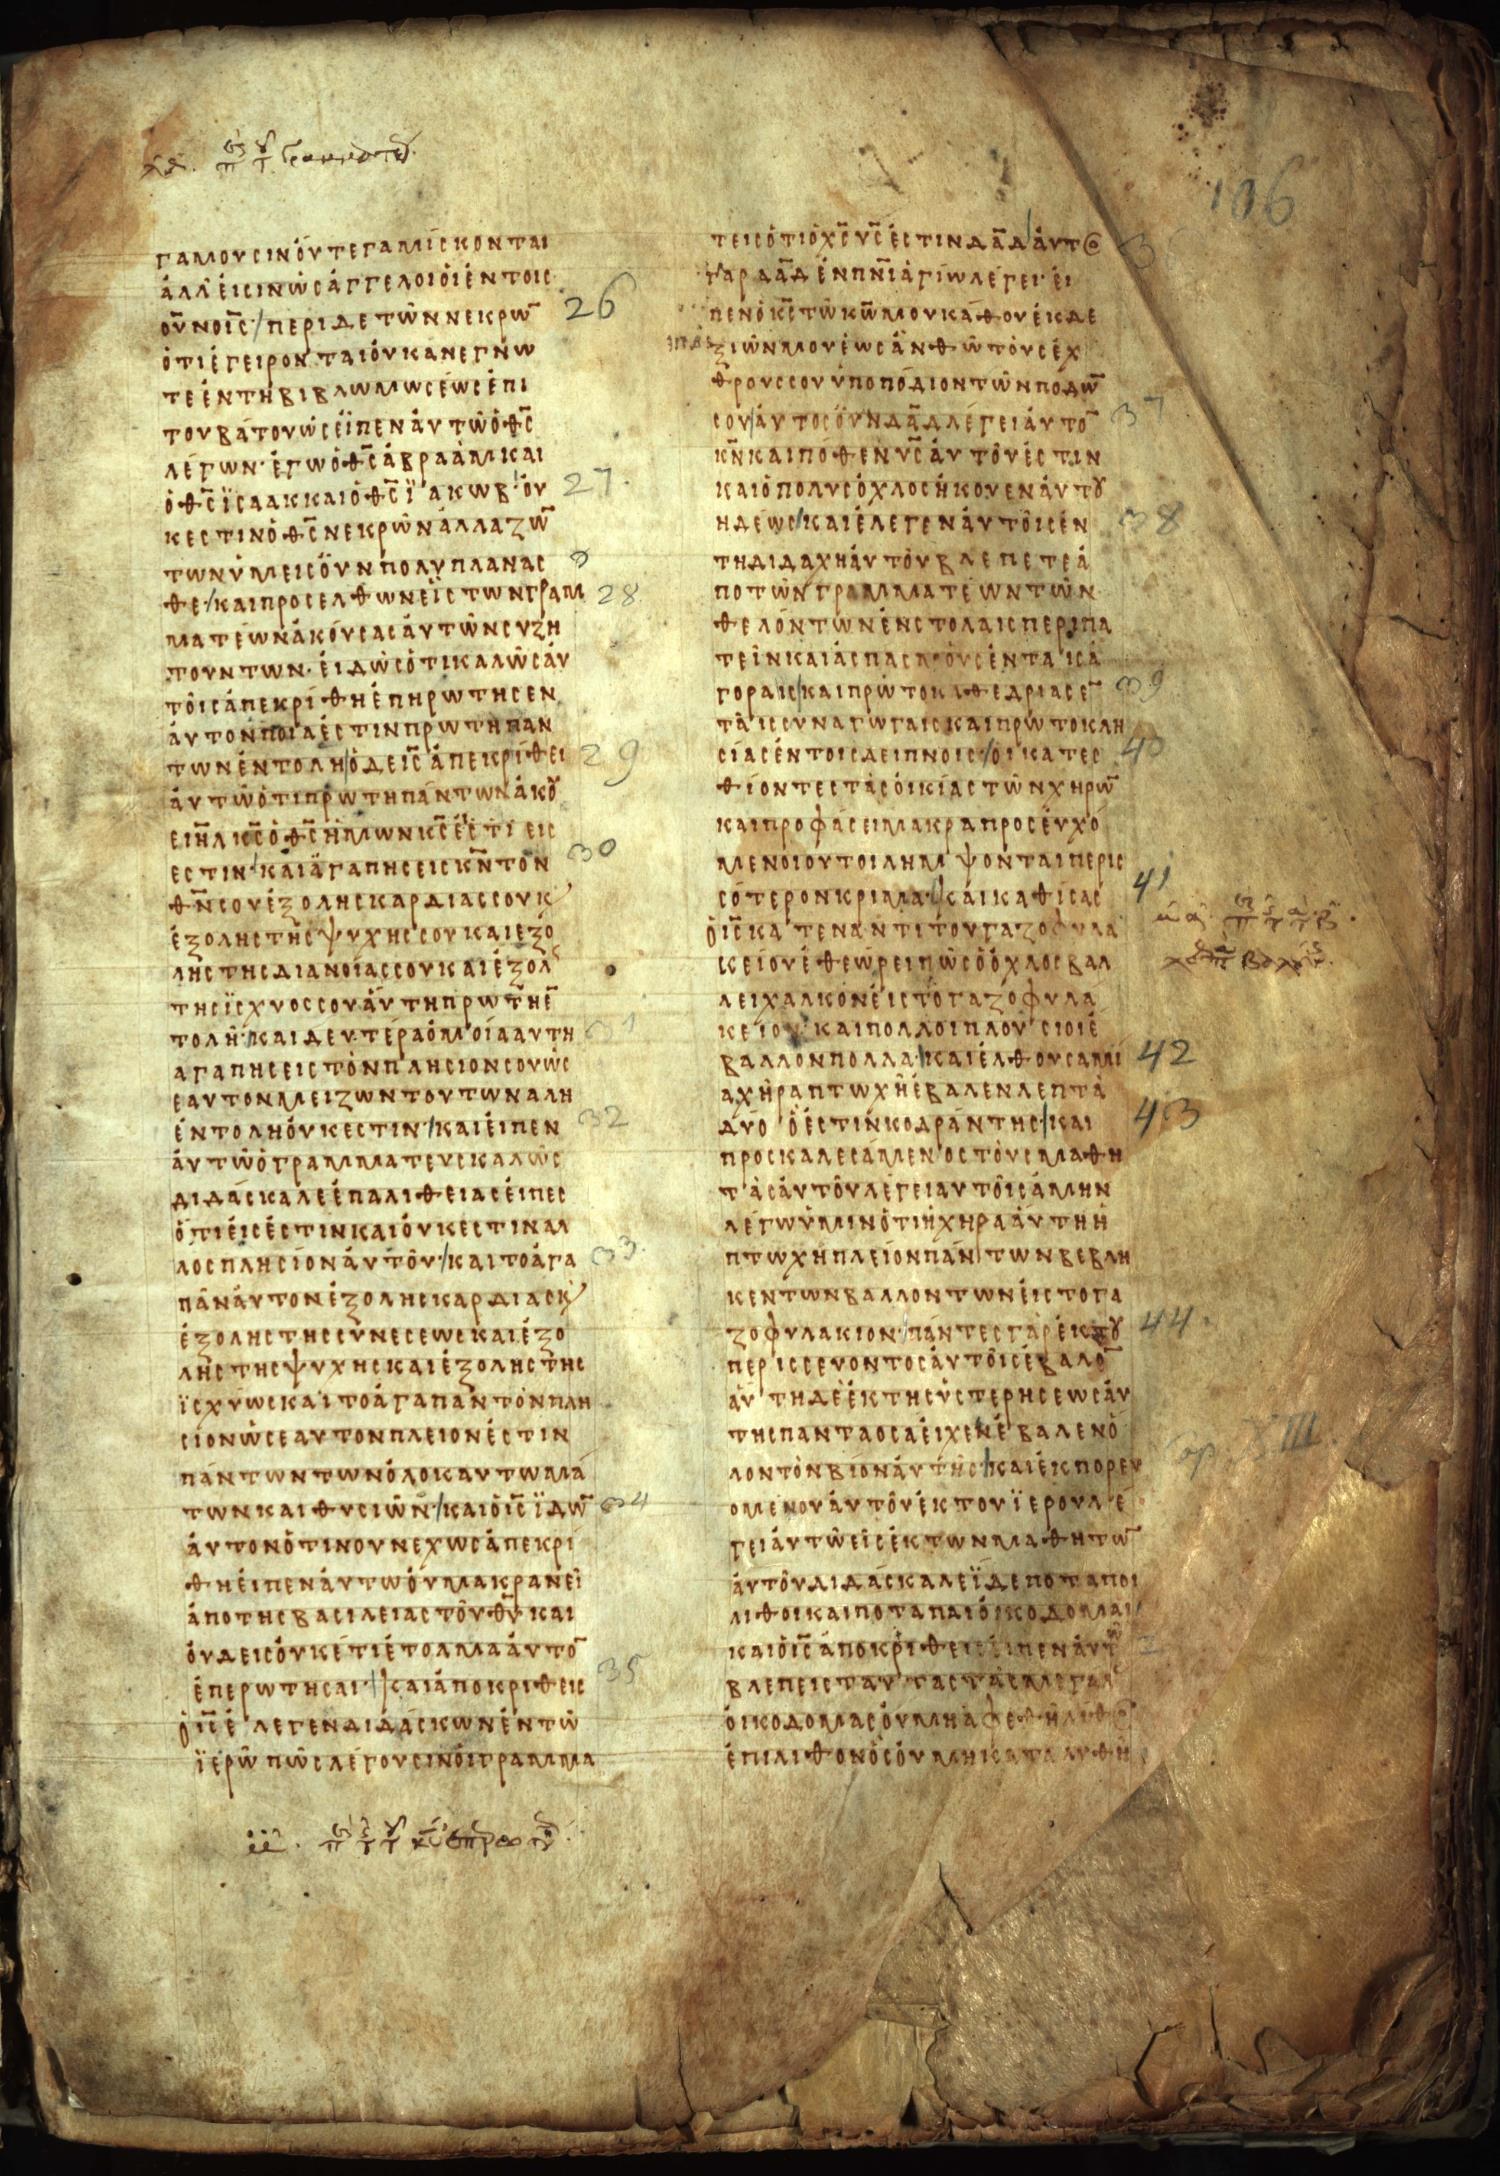 106
γαμουσιν ὀυτε γαμίσκονται
ἀλλ ἐισιν ὡς ἀγγελοι ὁι ἐν τοις
ουνοις / περι δε των νεκρω̅
ὁτι ἐγειρονται ὀυκ ανεγνω
τε ἐν τη βιβλω μωσέως ἐπι
του βατου ὡς ἐιπεν ἀυτω ὁ θ̅ς̅
λέγων· ἐγω ὁ θ̅ς̅ ἀβρααμ και
ὁ θ̅ς̅ ϊσαακ και ὁ θ̅ς̅ ϊακωβ· ὀυ
κ εστιν ὁ θ̅ς̅ νεκρων ἀλλα ζω̅
των ὑμεις ὀυν πολυ πλανασ
θε / και προσελθων εἱς των γραμ
ματέων ἀκόυσας ἀυτων συζη
τουντων· ἐιδως ὁτι καλως ἀυ
τοις ἀπεκριθη ἐπηρωτησεν
ἀυτον ποια ἐστιν πρωτη παν
των ἐντολη / ὁ δε ι̅ς̅ ἀπεκριθει
ἀυτω ὁτι πρωτη παντων ἀκου
ε ι̅η̅λ̅ κ̅ς̅ ὁ θ̅ς̅ ἡμων κ̅ς̅ ἐστι εις
εστιν / και ἀγαπησεις κ̅ν̅ τον
θ̅ν̅ σου ἐξ ολης καρδιας σου κ
ἐξ ολης της ψυχης σου και ἐξ ο
λης της διανοίας σου και ἐξ ολς
της ϊσχυος σου ἀυτη πρωτη ε̅
τολη / και δευτέρα ὁμοία αυτη
αγαπησεις τον πλησιον σου ως
εαυτον μειζων τουτων αλη
ἐντολη ὀυκ εστιν / και ἐιπεν
ἀυτω ὁ γραμματευς καλως
διδάσκαλε ἐπ αλιθειας ἐιπες
ὁτι ἐις ἐστιν και ὀυκ εστιν αλ
λος πλησίον ἀυτου / και το ἀγα
παν ἀυτον ἐξ ολης καρδιας κ
ἐξ ολης της συνεσεως και ἐξ ο
λης της ψυχης και ἐξ ολης της
ϊσχύως και το ἀγαπαν τον πλη
σίον ὡς εαυτον πλειον ἐστιν
παντων των ὁλοκαυτωμα
των και θυσιων / και ὁ ι̅ς̅ ϊδω̅
ἀυτον ὁτι νουνεχως ἀπεκρι
θη ἐιπεν ἀυτω ὀυ μακραν ει
ἀπο της βασιλειας του θ̅υ̅ και
ὀυδεις ὀυκέτι ἐτολμα ἀυτο̅
ἐπερωτησαι / και ἀποκριθεις
ὁ ι̅ς̅ ἐλεγεν διδάσκων ἐν τω
ϊερω πως λέγουσιν ὁι γραμμα
26
27
28
29
30
31
32
33
34
35
τεις ὁτι ὁ χ̅ς̅ υ̅ς̅ ἐστιν δ̅α̅δ̅ / ἀυτο
γαρ δ̅α̅δ̅ ἐν π̅ν̅ι̅ ἁγίω λέγει· ἐι
πεν ὁ κ̅ς̅ τω κ̅ω̅ μου κάθου ἐκ δε
ξιων μου ἑως ἀν θω τους ἐχ
θρους σου ὑποπόδιον των ποδω̅
σου / ἀυτος ὀυν δ̅α̅δ̅ λέγει ἀυτο̅
κ̅ν̅ και πόθεν υ̅ς̅ ἀυτου ἐστιν
και ὁ πολυς ὀχλος ἠκουεν ἀυτου
ηδέως / και ἐλεγεν ἀυτοις ἐν
τη διδαχη ἀυτου βλεπετε ἀ
πο των γραμματέων των
θελόντων ἐν στολαις περιπα
τειν και ἀσπασμους ἐν ταις ἀ
γοραις / και πρωτοκαθεδριας ε̅
ταις συναγωγαις και πρωτοκλη
σίας ἐν τοις δειπνοις / ὁι κατεσ
θιοντες τας ὀικίας των χηρω̅
και προφάσει μακρα προσευχό
μενοι ουτοι λημψονται περισ
σότερον κριμα / και καθισας
ὁ ι̅ς̅ κατεναντι του γαζοφυλα
κείου ἐθεωρει πως ὁ ὀχλος βαλ
λει χαλκον ἐις το γαζοφυλα
κειον και πολλοι πλουσιοι ἐ
βαλλον πολλα / και ἐλθουσα μι
α χηρα πτωχη ἐβαλεν λεπτα
δυο ὁ ἐστιν κοδραντης / και
προσκαλεσάμενος τους μαθη
τας ἀυτου λέγει αυτοις ἀμην
λέγω ὑμιν ὁτι ἡ χηρα ἀυτη ἡ
πτωχη πλειον παντων βεβλη
κεν των βαλλοντων ἐις το γα
ζοφυλακιον / παντες γαρ ἐκ του
περισσευοντος ἀυτοις ἐβαλο̅
ἀυτη δε ἐκ της ὑστερησεως ἀυ
της παντα οσα ειχεν ἐβαλεν ὁ
λον τον βιον ἀυτης / και ἐκπορευ
ομενου ἀυτου ἐκ του ϊερου λέ
γει ἀυτω εις ἐκ των μαθητω̅
ἀυτου διδάσκαλε ϊδε ποταποι
λιθοι και ποταπαι ὀικοδομαι
και ὁ ι̅ς̅ ἀποκριθεις ἐιπεν ἀυτω
βλεπεις ταυτας τας μεγαλ
ὀικοδομας ὀυ μη ἀφεθη λιθο
ἐπι λιθον ὁς ὀυ μη καταλυθη
37
38
39
40
41
42
43
44